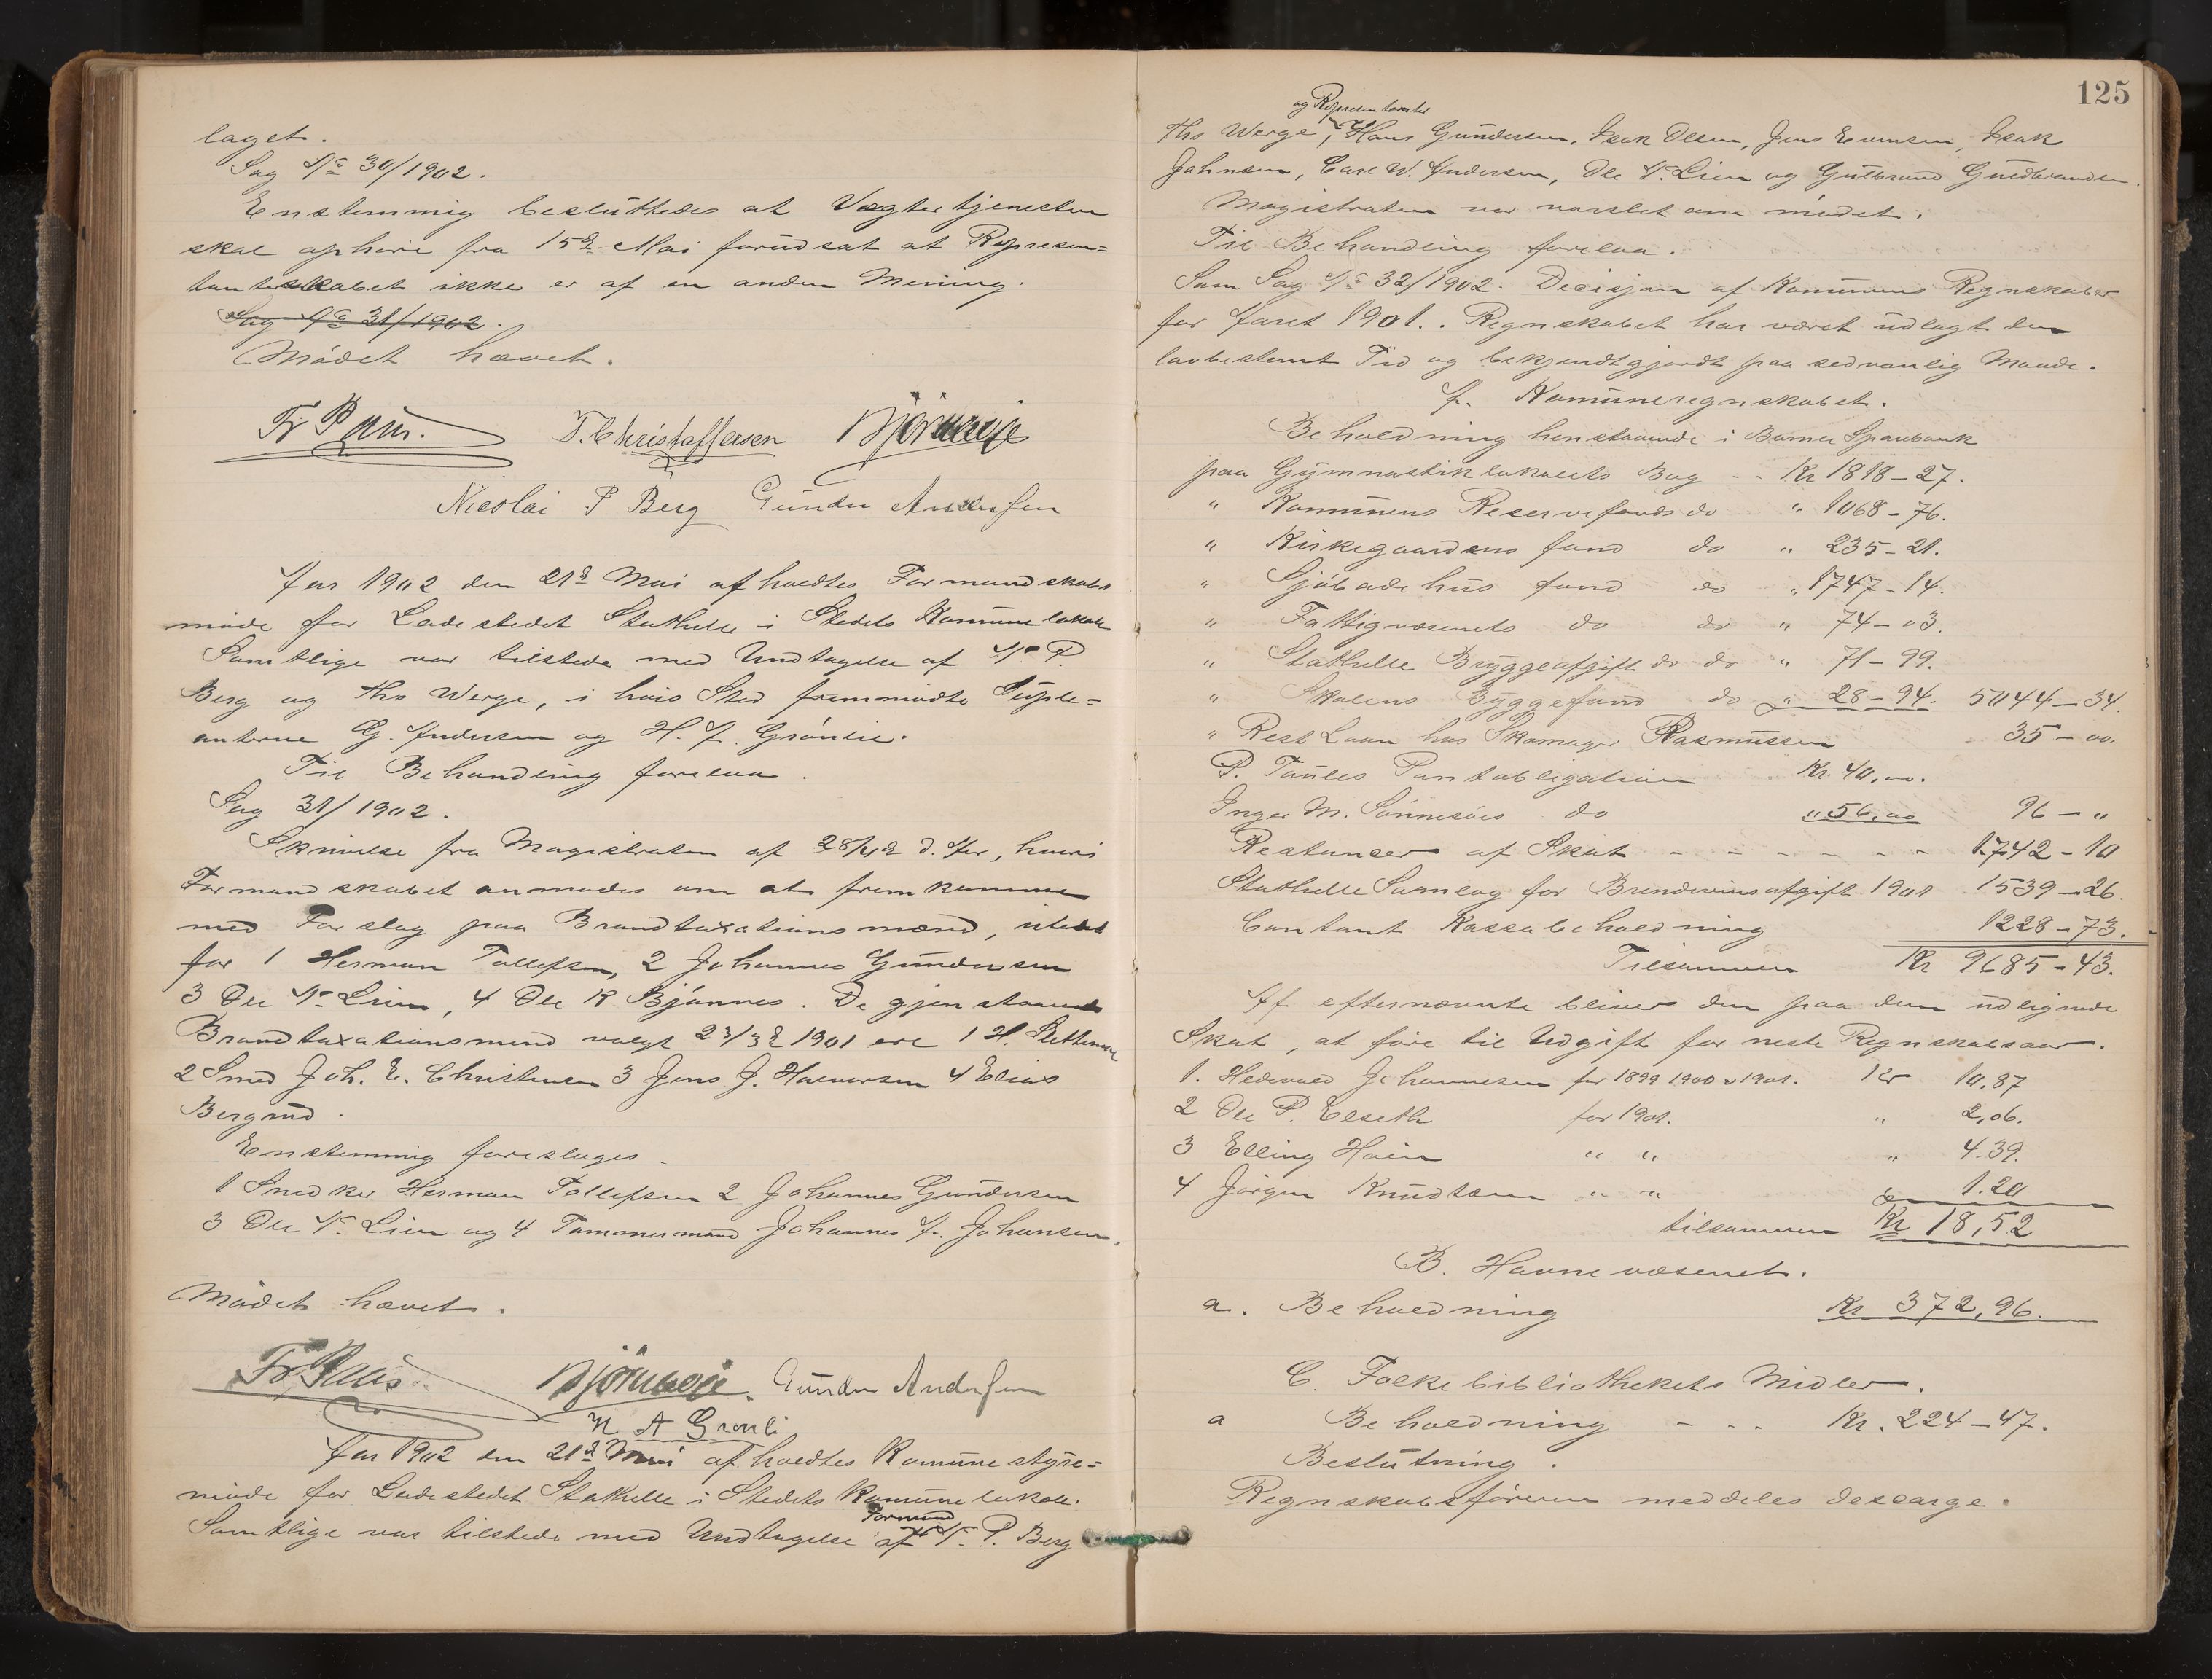 laget.
Sag No 30/1902.
Enstemmig besluttedes at Vægtertjenesten
skal ophøre fra 15de Mai forudsat at Represen=
tantskabet ikke er af en anden Mening.
Sag No 31/1902.
Mødet hævet.
Fr. T. Christoffersen Björnnæs
Nicolai P Berg Gunder Andersen
Aar 1902 den 21de Mai afholdtes Formandskabs
møde for Ladestedet Stathelle i Stedets Komunelokale
Samtlige var tilstede med Undtagelse af N. P.
Berg og Ths Werge, i hvis Sted fremmødte Suple=
anterne G. Andersen og H. A. Grönlie.
Til Behandling forelaa.
Sag 31/1902.
Skrivelse fra Magistraten af 28/4 d. Aar, hvori
Formandskabet anmodes om at fremkomme
med Forslag paa Brandtaxationsmænd, istedet
for 1 Herman Tollefsen, 2 Johannes Gundersen
3 Ole N. Lien, 4 Ole K Bjønnes. De gjenstaaende
Brandtaxationsmend valgt 23/3 1901 ere 1 H.
2 Smed Joh. E. Christensen 3 Jens J. Halvorsen 4 Elias
Bergrud.
Enstemmig foresloges.
1 Snedker Herman Tollefsen 2 Johannes Gundersen
3 Ole N. Lien og 4 Tømmermand Johannes A. Johansen.
Mødet hævet.
Fr. Björnnæs. Gunder Andersen
H A Grønli
Aar 1902 den 21de Mai afholdtes Komunestyre=
møde for Ladestedet Stathelle i Stedets Komunelokale.
Formænd
Samtlige var tilstede med Undtagelse af N. P. Berg
125
og Representanter
Ths Werge, Hans Gundersen, Isak Olsen, Jens Evensen, Isak
Johnsen, Carl W. Andersen, Ole N. Lien og Gulbrand Guldbrandsen.
Magistraten var varslet om mødet.
Til Behandling forelaa.
Som Sag No 32/1902. Decisjon af Komunens Regnskaber
for Aaret 1901. Regnskabet har været udlagt den
lovbestemt Tid og bekjendtgjordt paa sedvanlig Maade.
A. Komuneregnskabet.
Beholdning henstaaende i Bamle Sparebank
paa Gymnastiklokalets Bog - - Kr 1818-27.
" Komunens Reservefonds do " 1068-76.
" Kirkegaardens fond do " 235-21.
" Sjøbadehus fond do " 1747-14.
" Fattigvæsenets do do " 74-03.
" Stathelle Bryggeafgift do do " 71-99.
" Skolens Byggefond do " 28-94. 5044-34.
" Rest Laan hos Skomager Rasmussen 35-00.
P. Tautes Pantobligation Kr. 40,00.
Inger M. Sønnesøes do " 56,00 96-"
Restancer af Skat - - - - - - - 1742-10
Stathelle Samlag for Brændevinsafgift 1901 1539-26.
Contant Kassabeholdning 1228-73.
Tilsammen Kr 9685-43.
Af efternævnte bliver den paa dem udlignede
Skat, at føre til Udgift for neste Regnskabsaar.
1. Hedevold Johannesen for 1899 1900 o 1901. Kr 10.87
2 Ole P. Elseth for 1901. " 2,06.
3 Elling Hoien " " " 4.39.
4 Jørgen Knudtsen " " " 1.20
tilsammen Kr 18,52
B. Havnevæsenet.
a. Beholdning Kr 372,96.
C. Folkebibliothekets Midler.
a Beholdning - - - Kr. 224-47.
Beslutning.
Regnskabsføreren meddeles descarge.